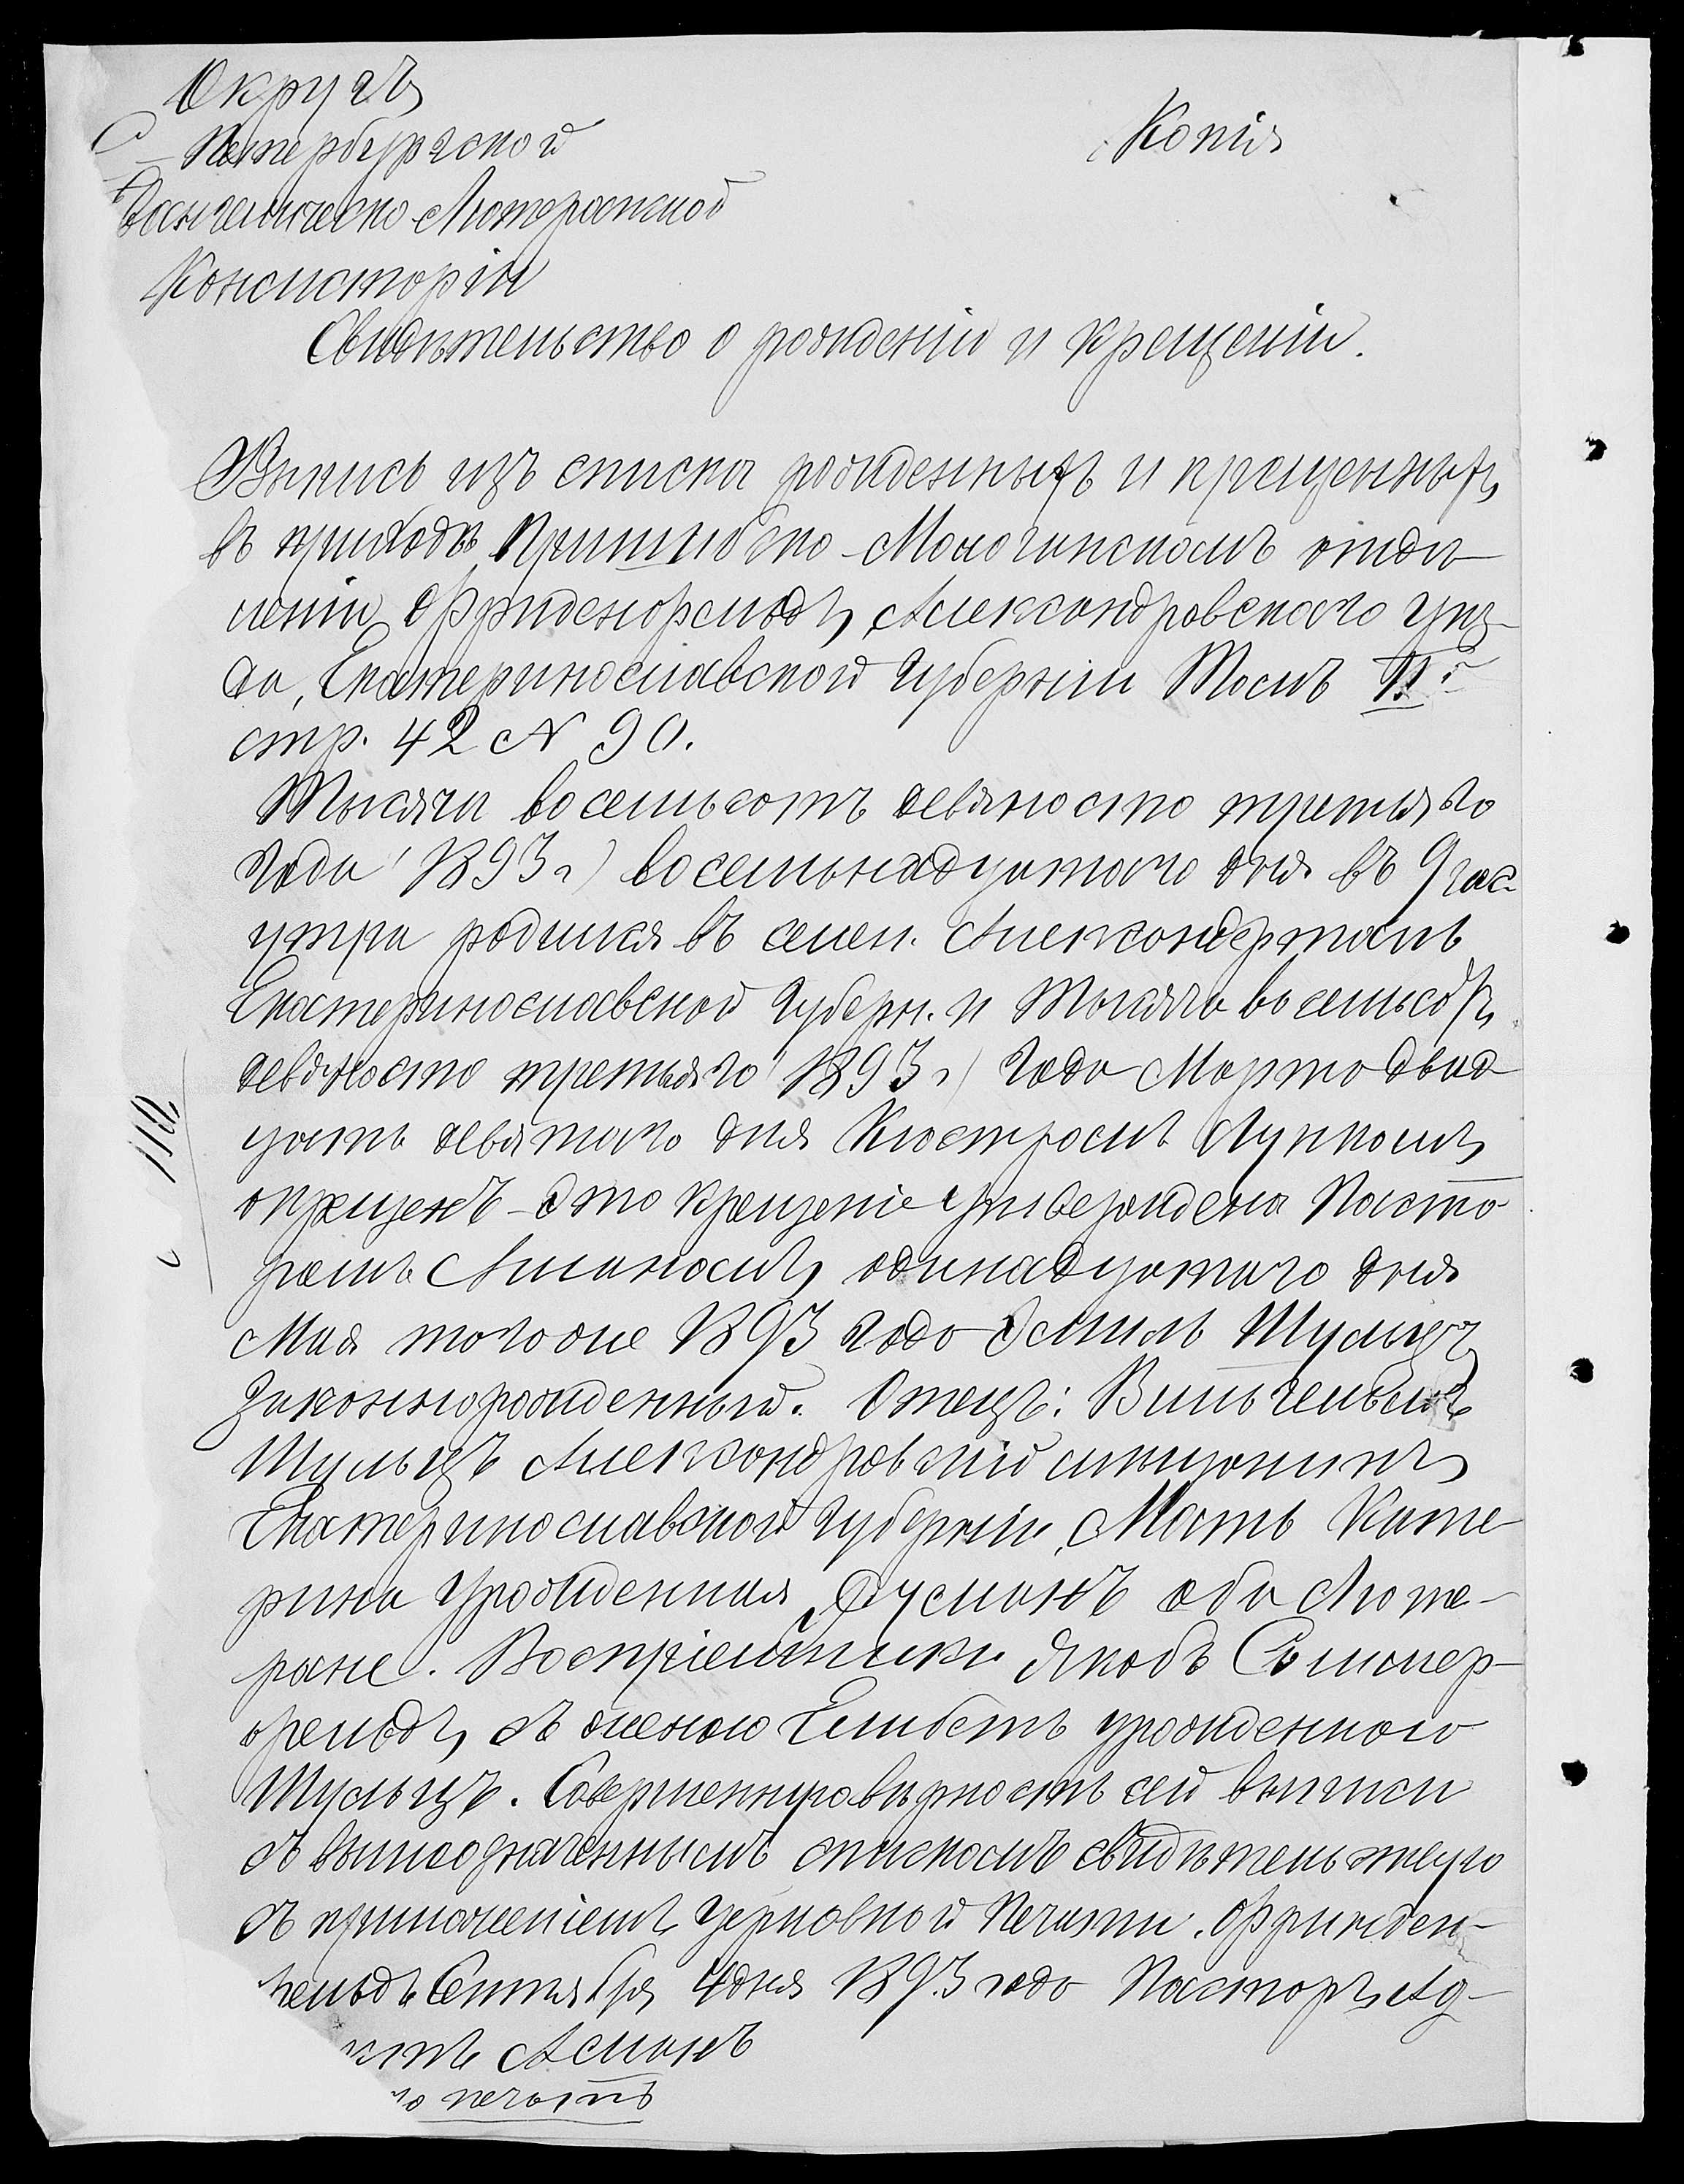 Округъ
С-Петербургской
Евангелическо-Лютеранской
Консисторіи
Копія
Свидѣтельство о рожденіи и крещеніи.
Выпись изъ списка рожденныхъ и крещенныхъ
въ приходѣ Пришибско-Молочанскомъ отдѣ-
леніи Фриденфельдъ, Александровскаго уѣз-
да, Екатеринославской Губерніи Томъ II.
стр. 42 N 90.
Тысяча восемьсотъ девяносто третьяго
года (1893 г) восемьнадцатаго дня въ 9 час
утра родился въ селен. Александерталь
Екатеринославской Губерн. и тысяча восемьсотъ
девяносто третьяго (1893 г) года Марта двад
цать девятаго дня Кюстромъ Лупкомъ
окрещенъ - это крещеніе утверждена Пасто
ромъ Аманомъ, одинадцатаго дня
Мая тогоже 1893 года Эмиль Шульцъ
законнорожденный. Отецъ: Вильгельмъ
Шульцъ Александровскій мѣщанинъ
Екатеринославской Губерніи, Мать Кате
рина урожденная Дусманъ оба Люте-
ране. Воспріемники Якобъ Соммер-
фельдъ, съ женою Елисбетъ урожденною
Шульцъ. вѣрность сей выписи
съ вышеозначеннымъ спискомъ свидѣтельствую
съ приложеніемъ церковной Печати. Фриден-
фельдъ Сентября 4 дня 1893 года Пасторъ Ад-
Асманъ
печать
110